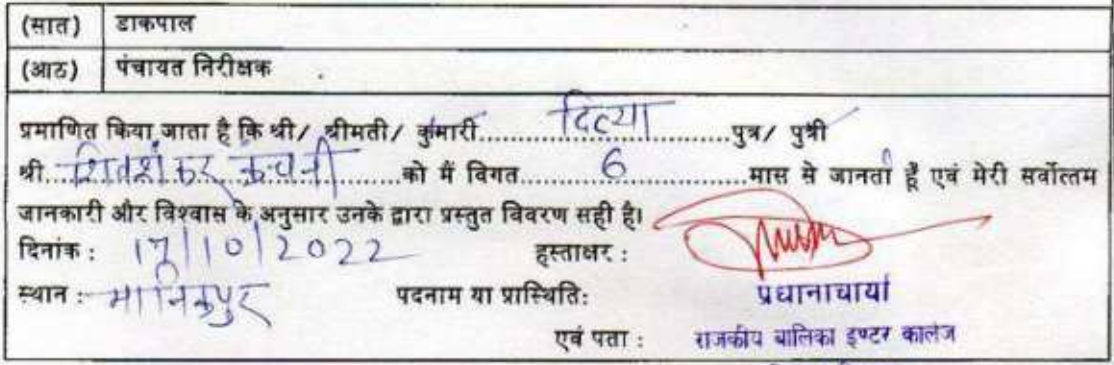 (सात) डाकपाल
(आठ) पंचायत निरीक्षक
प्रमाणित किया जाता है कि श्री/ श्रीमती/ कुमारी.......दिव्या.......पुत्र/ पुत्री
श्री.....शिवशंकर.......को मैं विगत.......6.......मास से जानता हूँ एवं मेरी सर्वोत्तम
जानकारी और विश्वास के अनुसार उनके द्वारा प्रस्तुत विवरण सही है।
दिनांक : 17/10/2022 हस्ताक्षर :
स्थान : मानिकपुर पदनाम या प्रास्थिति: प्रधानाचार्या
एवं पता : राजकीय बालिका इण्टर कालेज